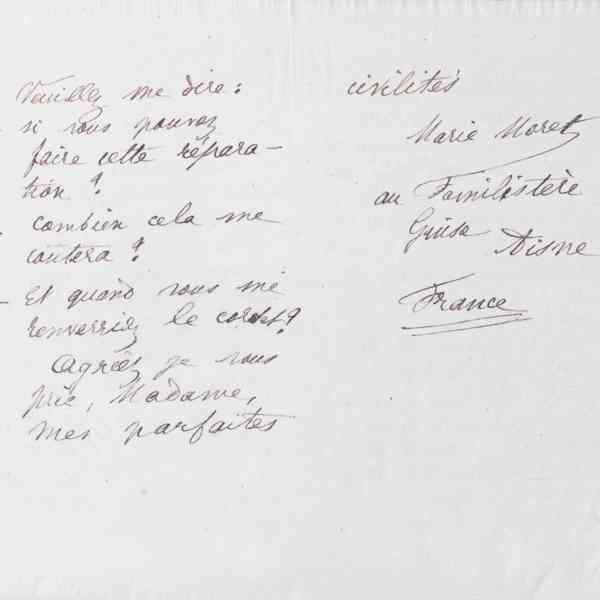 Veuillez me dire :
- si vous pouvez
faire cette répara-
tion ?
- combien cela me
coutera ?
- Et quand vous me
renverriez le corset ?
Agréez je vous
prie, Madame,
mes parfaites
civilités
Marie Moret
au Familistère
Guise Aisne
France